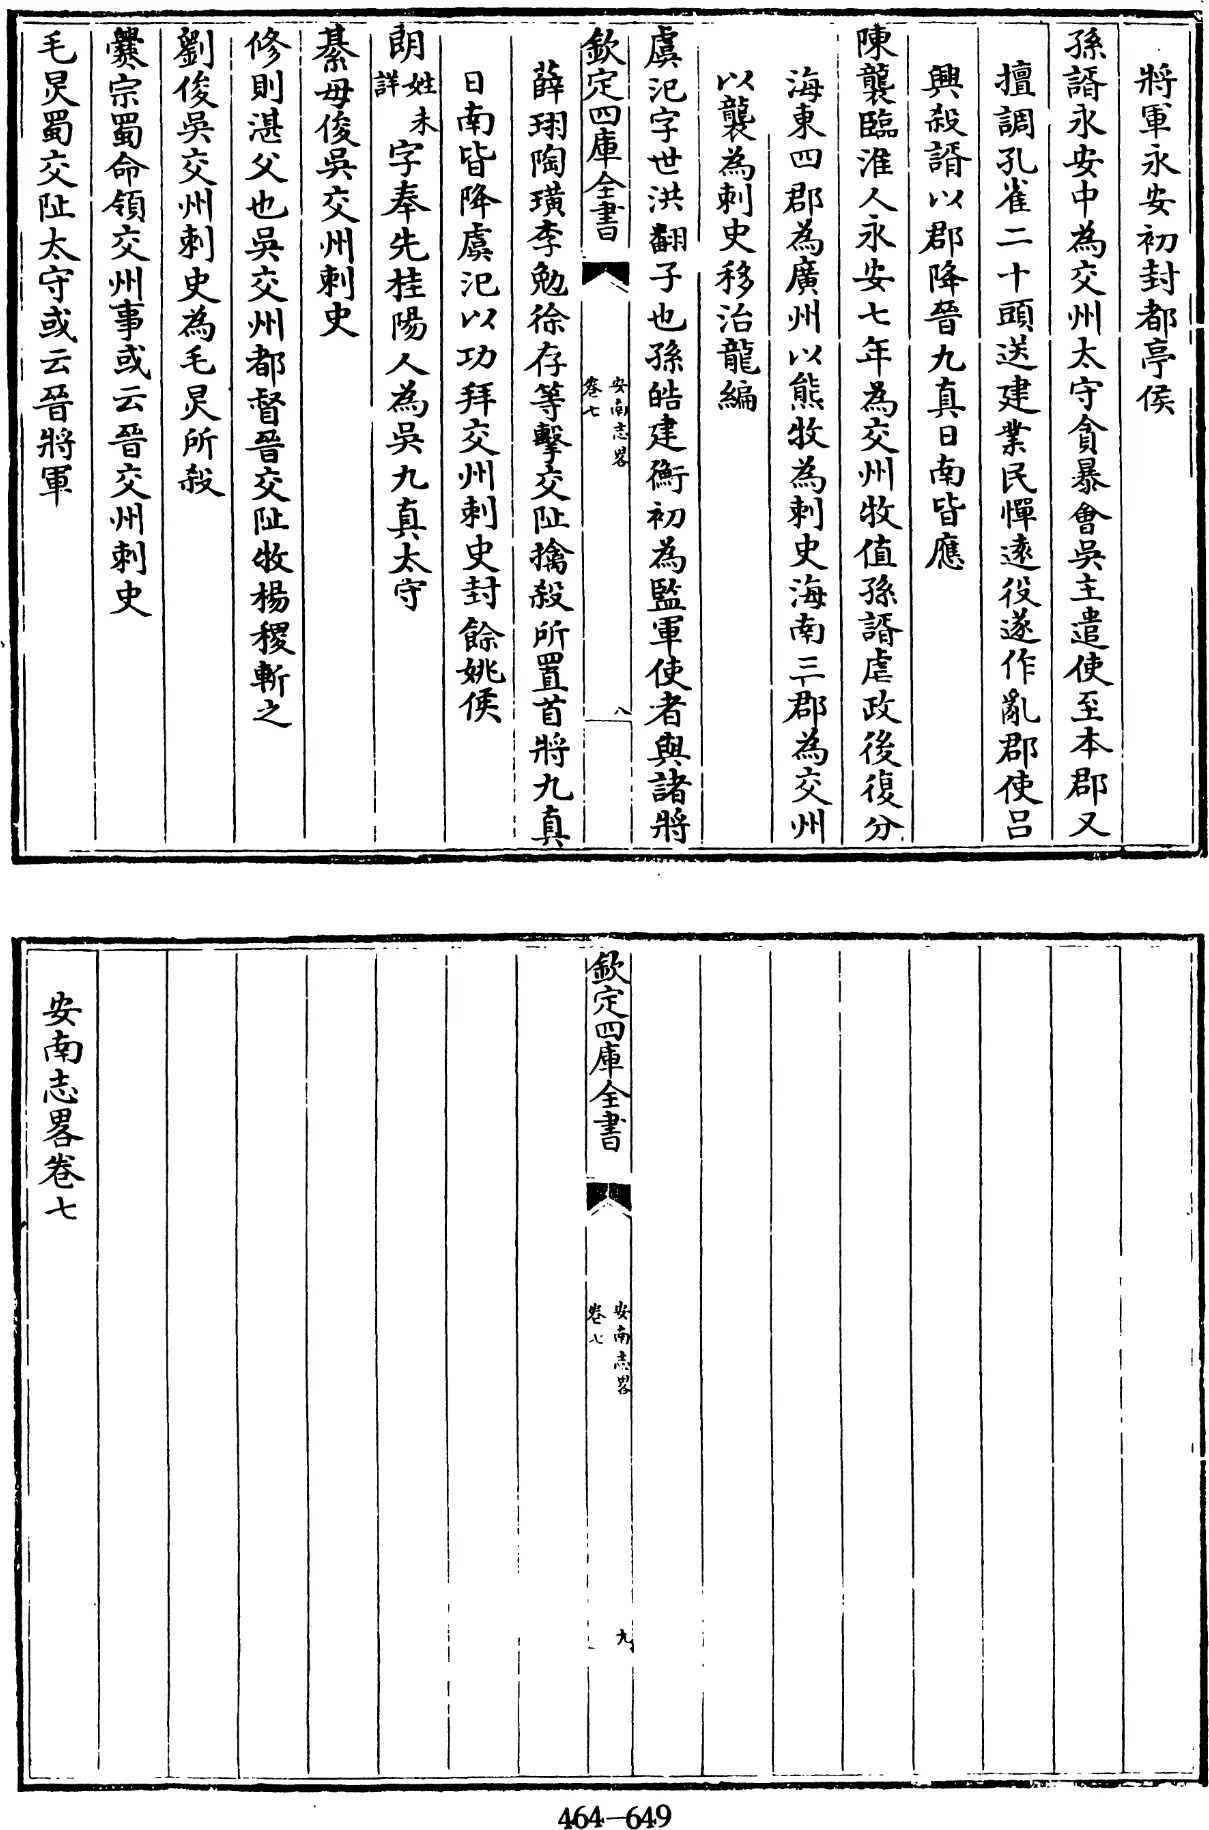 將軍永安初封都亭侯
孫諝永安中為交州太守貪暴會吳主遣使至本郡又
擅調孔雀二十頭送建業民憚遠役遂作亂郡使呂
興殺諝以郡降晉九真日南皆應
陳襲臨淮人永安七年為交州牧值孫諝虐政後復分
海東四郡為廣州以熊牧為刺史海南三郡為交州
以襲為刺史移治龍編
虞汜字世洪翻子也孫皓建衡初為監軍使者與諸將
欽定四庫全書
安南志畧
卷七
八
薛珝陶璜李勉徐存等擊交阯擒殺所置首將九真
日南皆降虞汜以功拜交州刺史封餘姚侯
朗姓未詳字奉先桂陽人為吳九真太守
綦毋俊吳交州刺史
修則湛父也吳交州都督晉交阯牧楊稷斬之
劉俊吳交州刺史為毛炅所殺
爨宗蜀命領交州事或云晉交州刺史
毛炅蜀交阯太守或云晉將軍
欽定四庫全書
安南志畧
卷七
九
安南志畧卷七
464-649